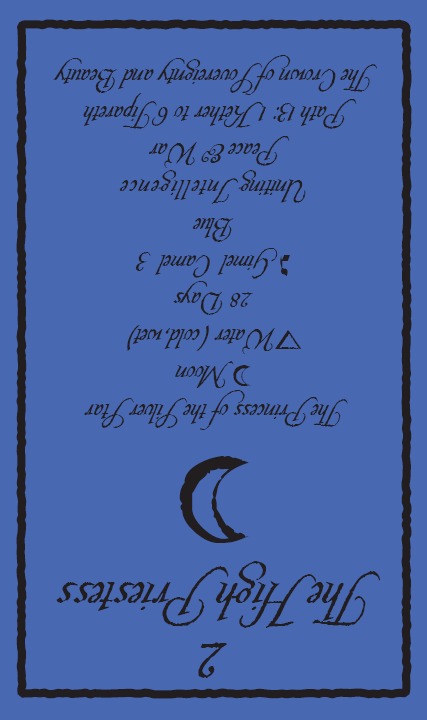 2
The High Priestess
The Princess of the Silver Star
Moon
Water (cold, wet)
28 Days
Gimel Camel 3
Blue
Uniting Intelligence
Peace & War
Path 13: 1 Kether to 6 Tipareth
The Crown of Sovereignty and Beauty